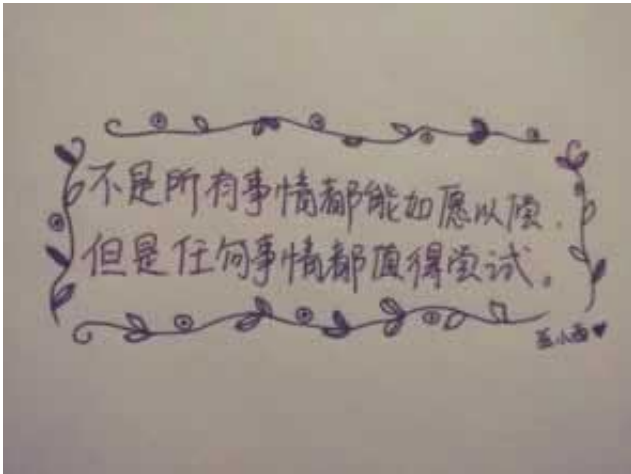 不是所有事情都能如愿以偿，
但是任何事情都值得尝试。